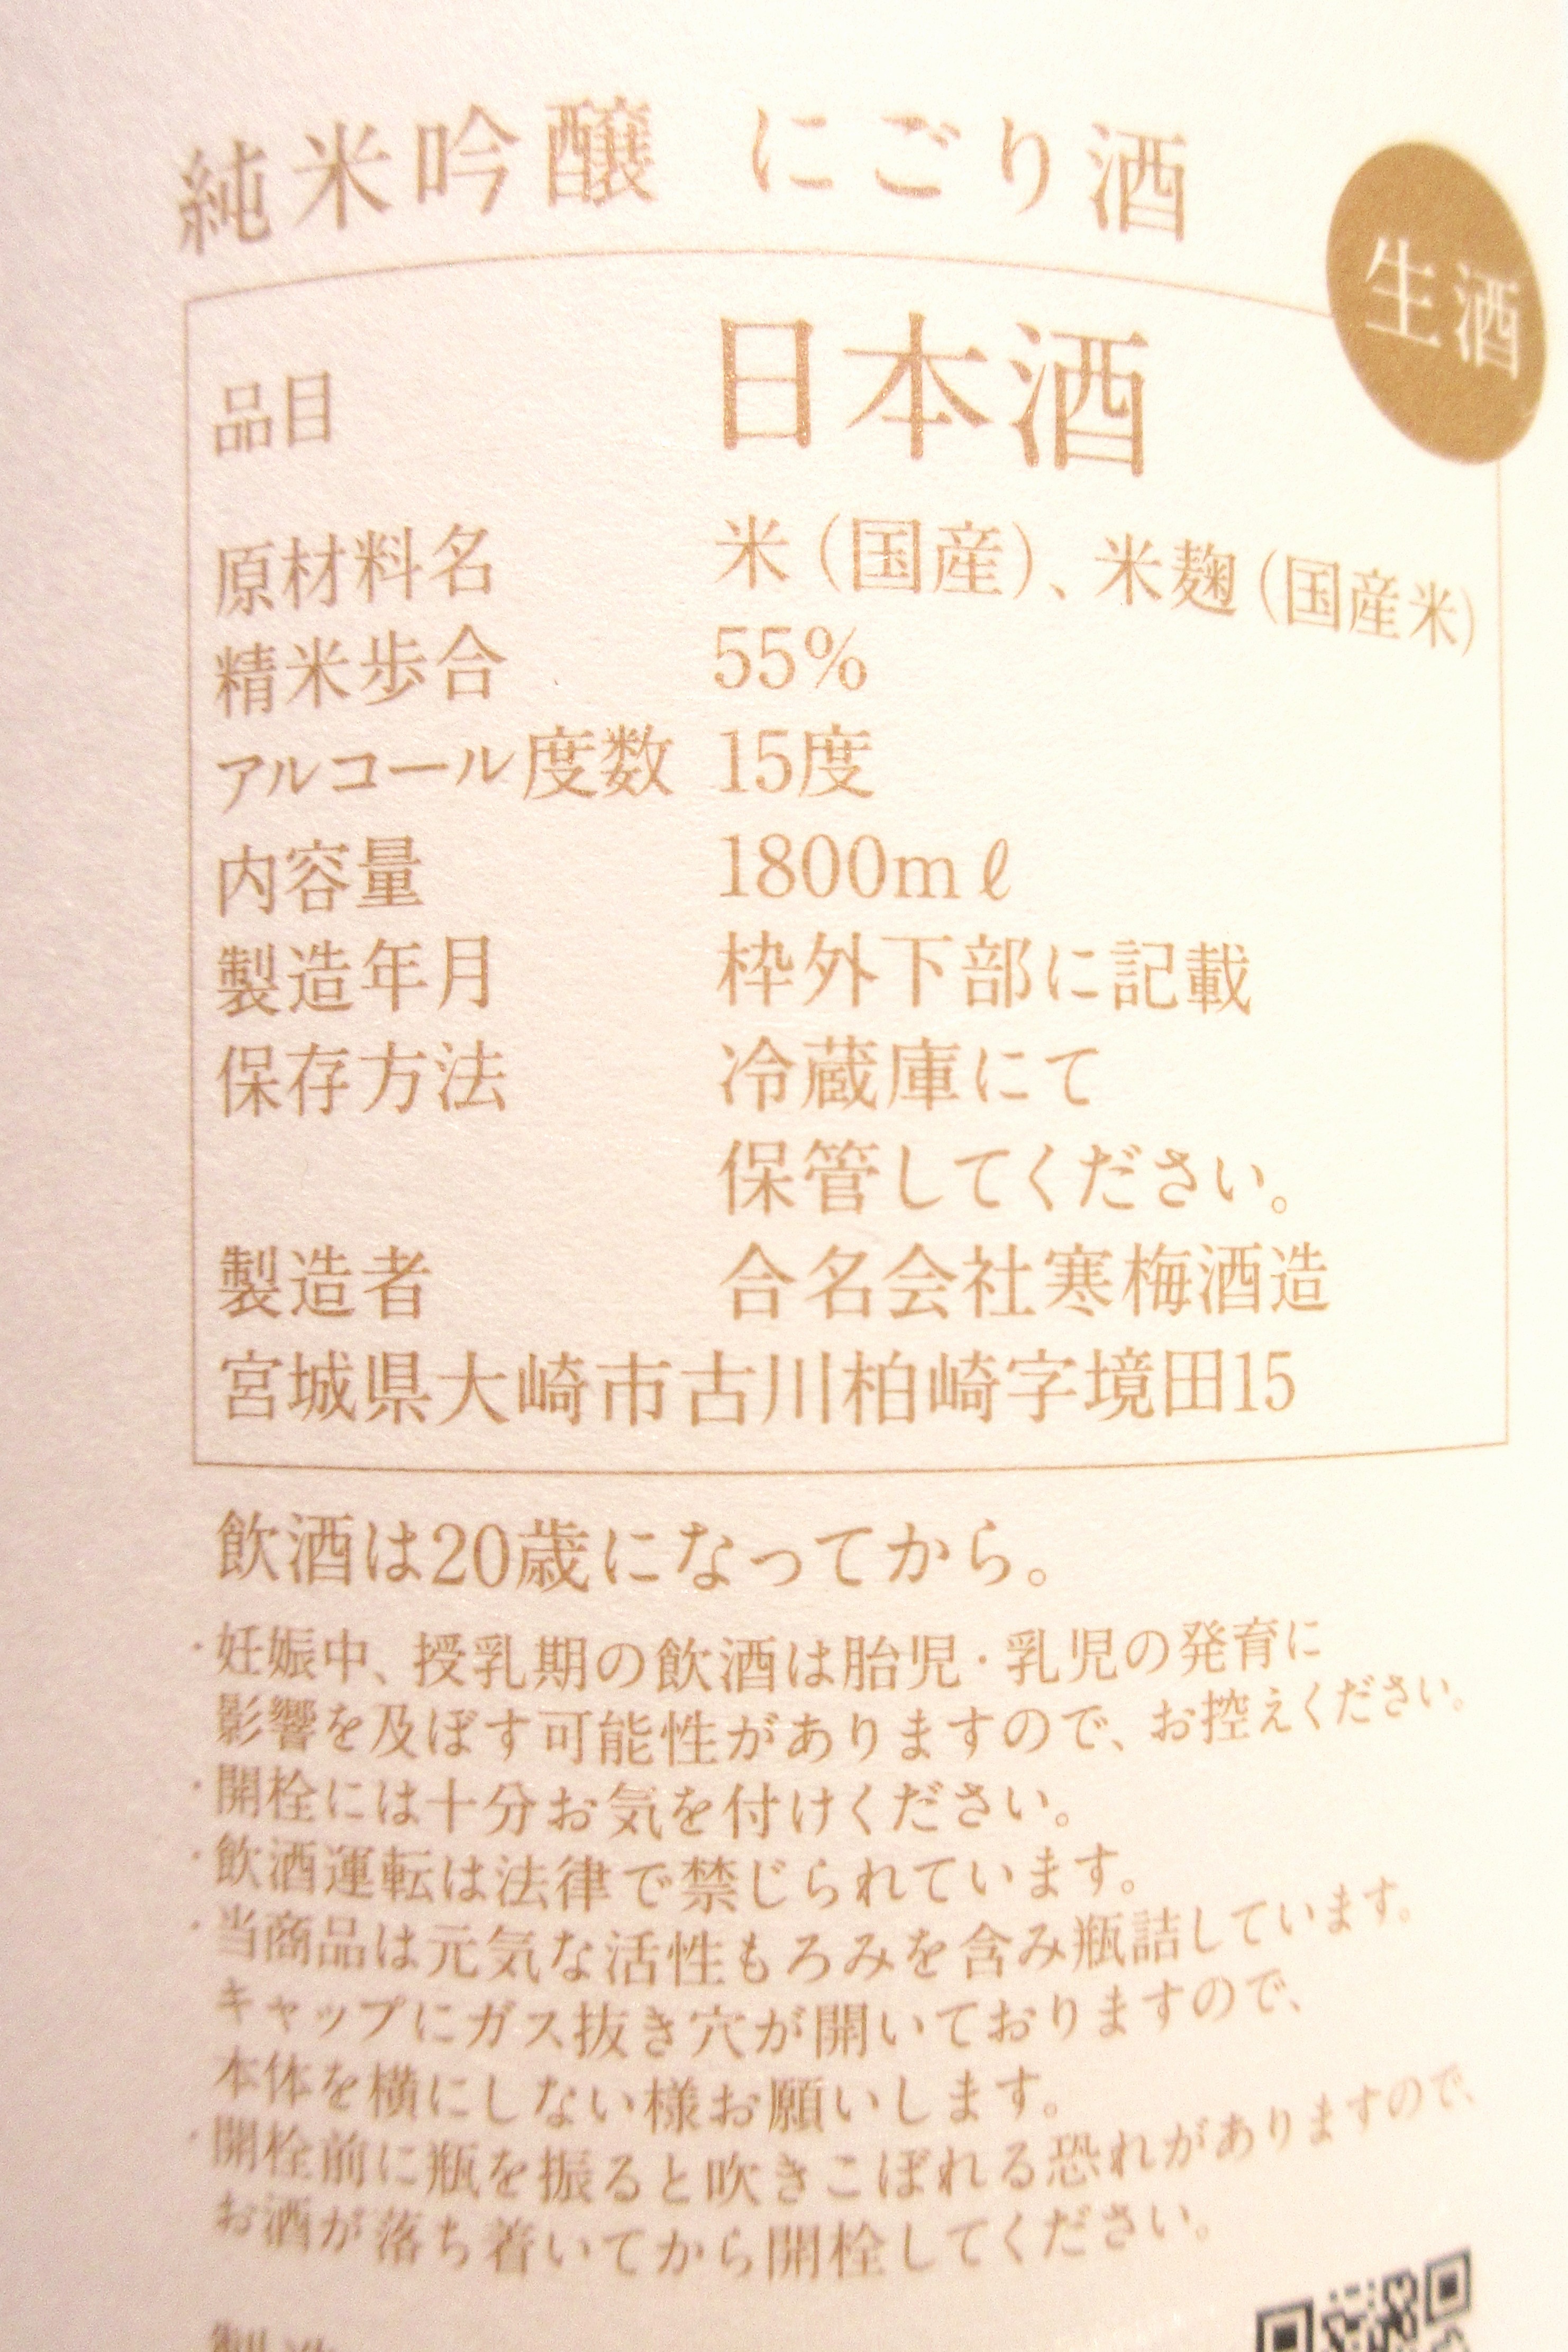 純米吟醸 にごり酒
生酒
品目 日本酒
原材料名 米（国産）、米麹（国産米）
精米歩合 55%
アルコール度数 15度
内容量 1800mℓ
製造年月 枠外下部に記載
保存方法 冷蔵庫にて
保管してください。
製造者 合名会社寒梅酒造
宮城県大崎市古川柏崎字境田15
飲酒は20歳になってから。
・妊娠中、授乳期の飲酒は胎児・乳児の発育に
影響を及ぼす可能性がありますので、お控えください。
・開栓には十分お気を付けください。
・飲酒運転は法律で禁じられています。
・当商品は元気な活性もろみを含み瓶詰しています。
キャップにガス抜き穴が開いておりますので、
本体を横にしない様お願いします。
・開栓前に瓶を振ると吹きこぼれる恐れがありますので、
お酒が落ち着いてから開栓してください。